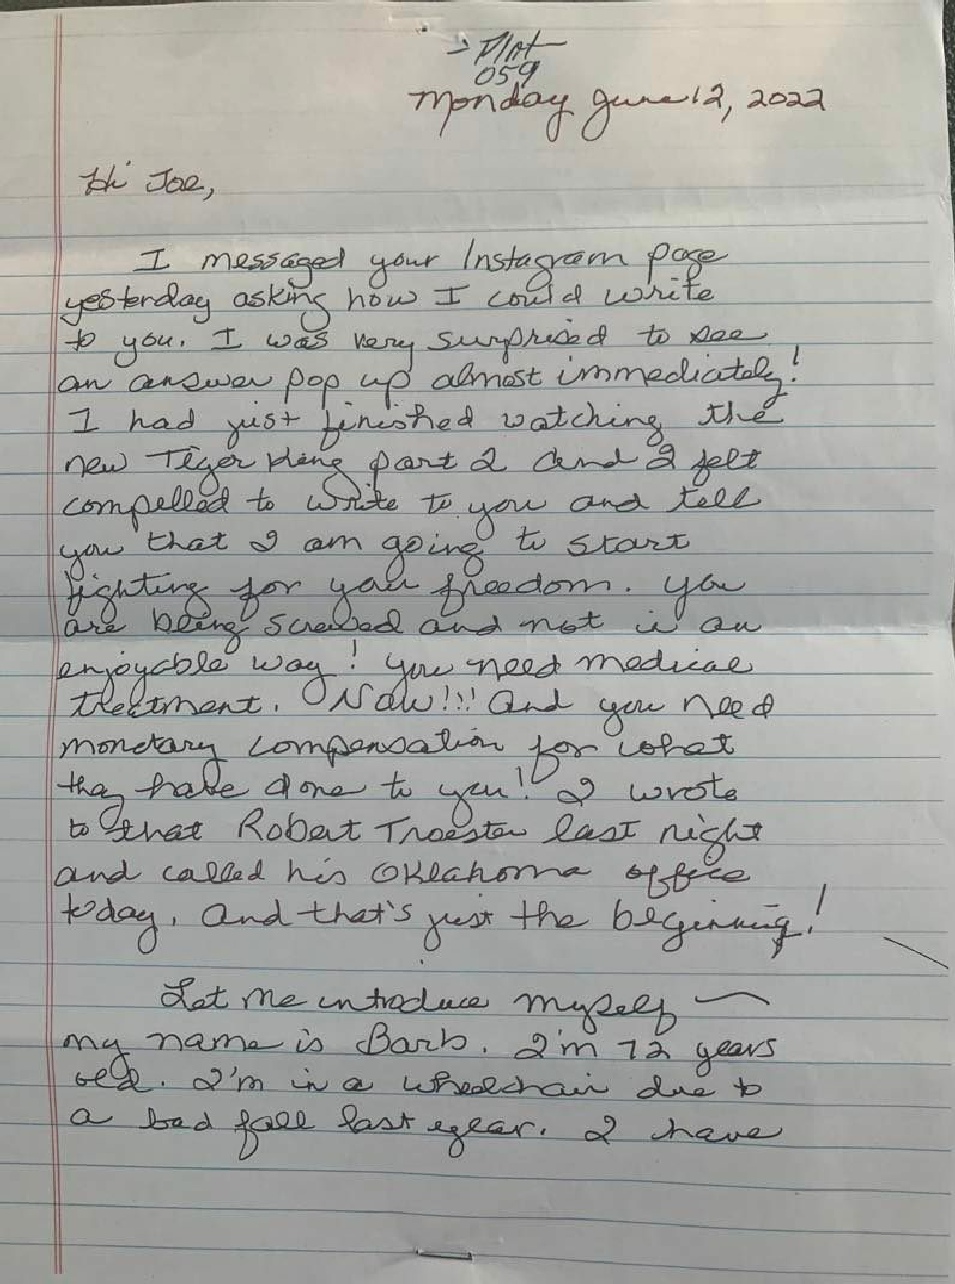 → Plat
059
Monday June 12, 2022
Hi Joe,
I messaged your Instagram page
yesterday asking how I could write
to you. I was very surprised to see
an answer pop up almost immediately!
I had just finished watching the
new Tiger King part 2 and I felt
compelled to write to you and tell
you that I am going to start
fighting for your freedom. You
are being screwed and not in an
enjoyable way! You need medical
treatment. Now!!! And you need
monetary compensation for what
they have done to you! I wrote
to that Robert Troester last night
and called his Oklahoma office
today. And that's just the beginning!
Let me introduce myself —
my name is Barb. I'm 72 years
old. I'm in a wheelchair due to
a bad fall last year. I have